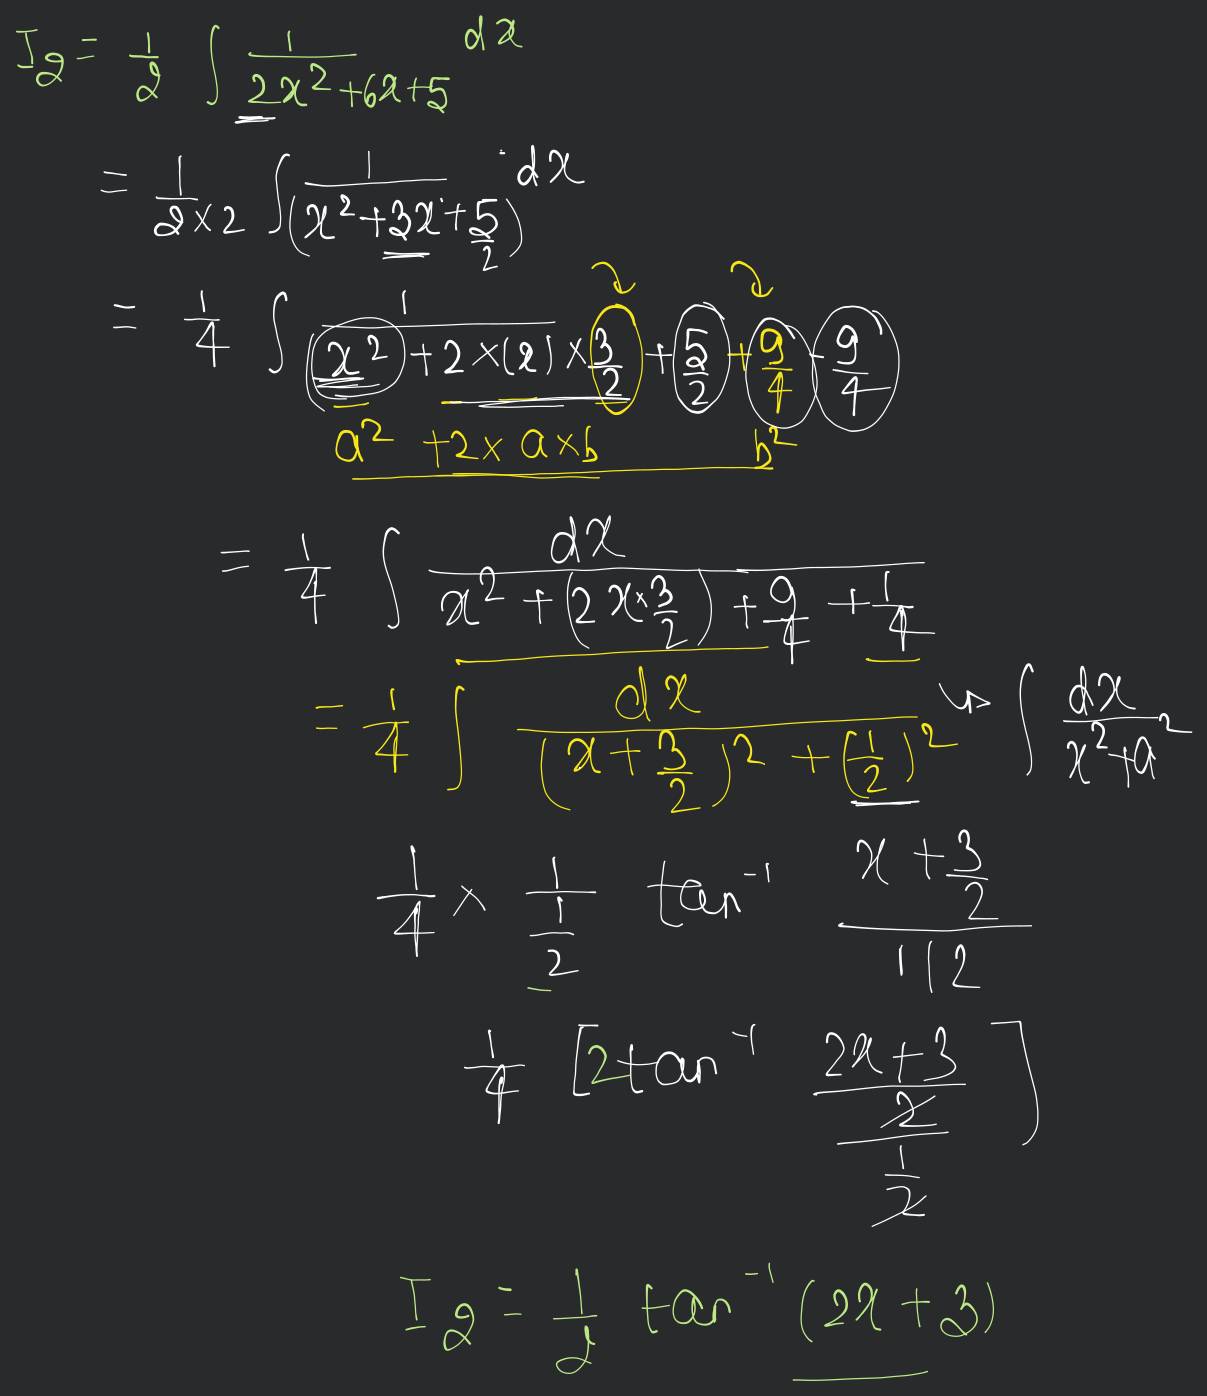 I₂ = 1/2 ∫ 1/(2x²+6x+5) dx
= 1/(2×2) ∫ 1/(x²+3x+5/2) dx
= 1/4 ∫ 1/(x² + 2×(x)×3/2 + 5/2 + 9/4 - 9/4
a² + 2× a×b b²
= 1/4 ∫ dx/(x² + (2x×3/2) + 9/4 + 1/4)
= 1/4 ∫ dx/((x+3/2)² + (1/2)²) ↳ ∫ dx/(x²+a²)
1/4 × 1/(1/2) tan⁻¹ (x+3/2)/(1/2)
1/4 [2tan⁻¹ ((2x+3)/2)/(1/2)]
I₂ = 1/2 tan⁻¹ (2x+3)